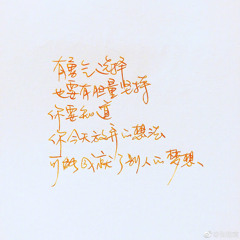 有勇气选择
也要有胆量坚持
你要知道
你今天放弃的想法
可能成就了别人的梦想、